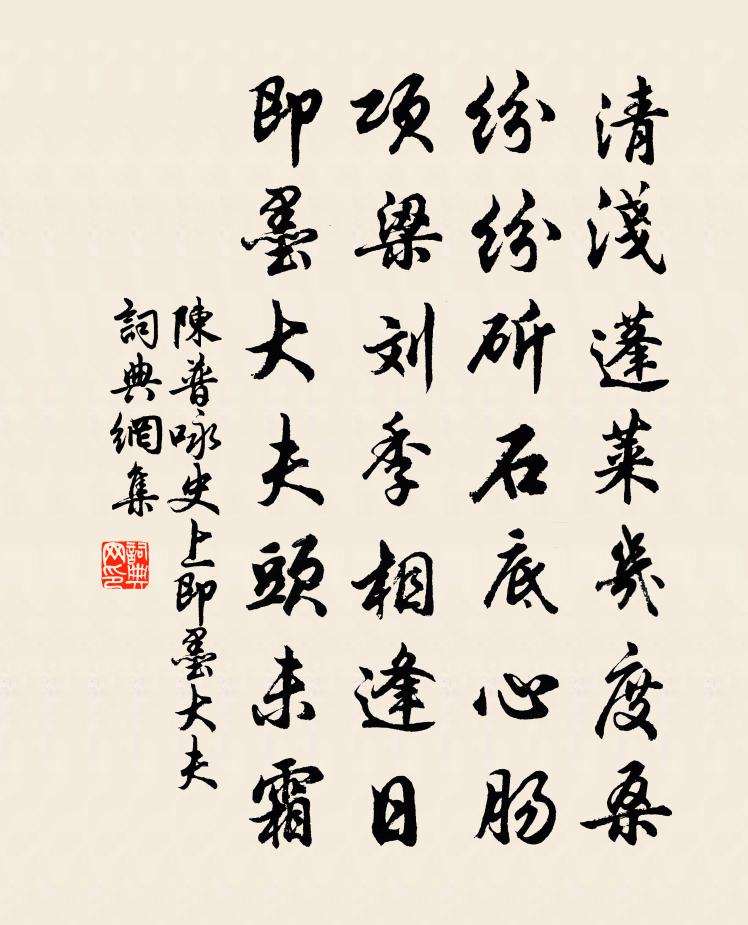 清淺蓬萊幾度桑
紛紛斫石底心腸
項梁刘季相逢日
即墨大夫頭未霜
陳普咏史上即墨大夫
詞典網集
詞典網印